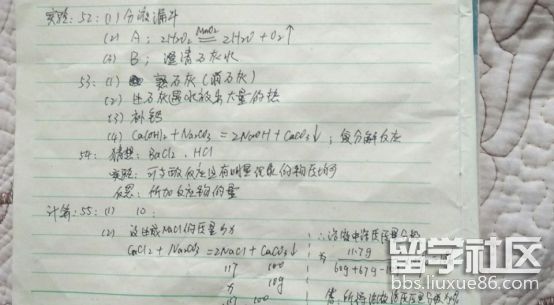 实验:52:(1)分液漏斗
(2) A; 2H2O2 MnO2 2H2O+O2↑
(4) B; 澄清石灰水
53:(1) 熟石灰(消石灰)
(2) 生石灰遇水放出大量的热
(3) 补钙
(4) Ca(OH)2+Na2CO3=2NaOH+CaCO3↓; 复分解反应
54: 猜想: BaCl2、HCl
实验: 可与酸反应且有明显现象的物质均可
反思: 所加反应物的量
计算:55:(1) 10;
(2) 设生成NaCl的质量为
CaCl2+Na2CO3=2NaCl+CaCO3↓
117 100
10g
117 100
∴溶液中溶质质量分数
为 11.7g
60g+67g-
答:所得溶液溶质质量分数
留学社区
bbs.liuxue86.com